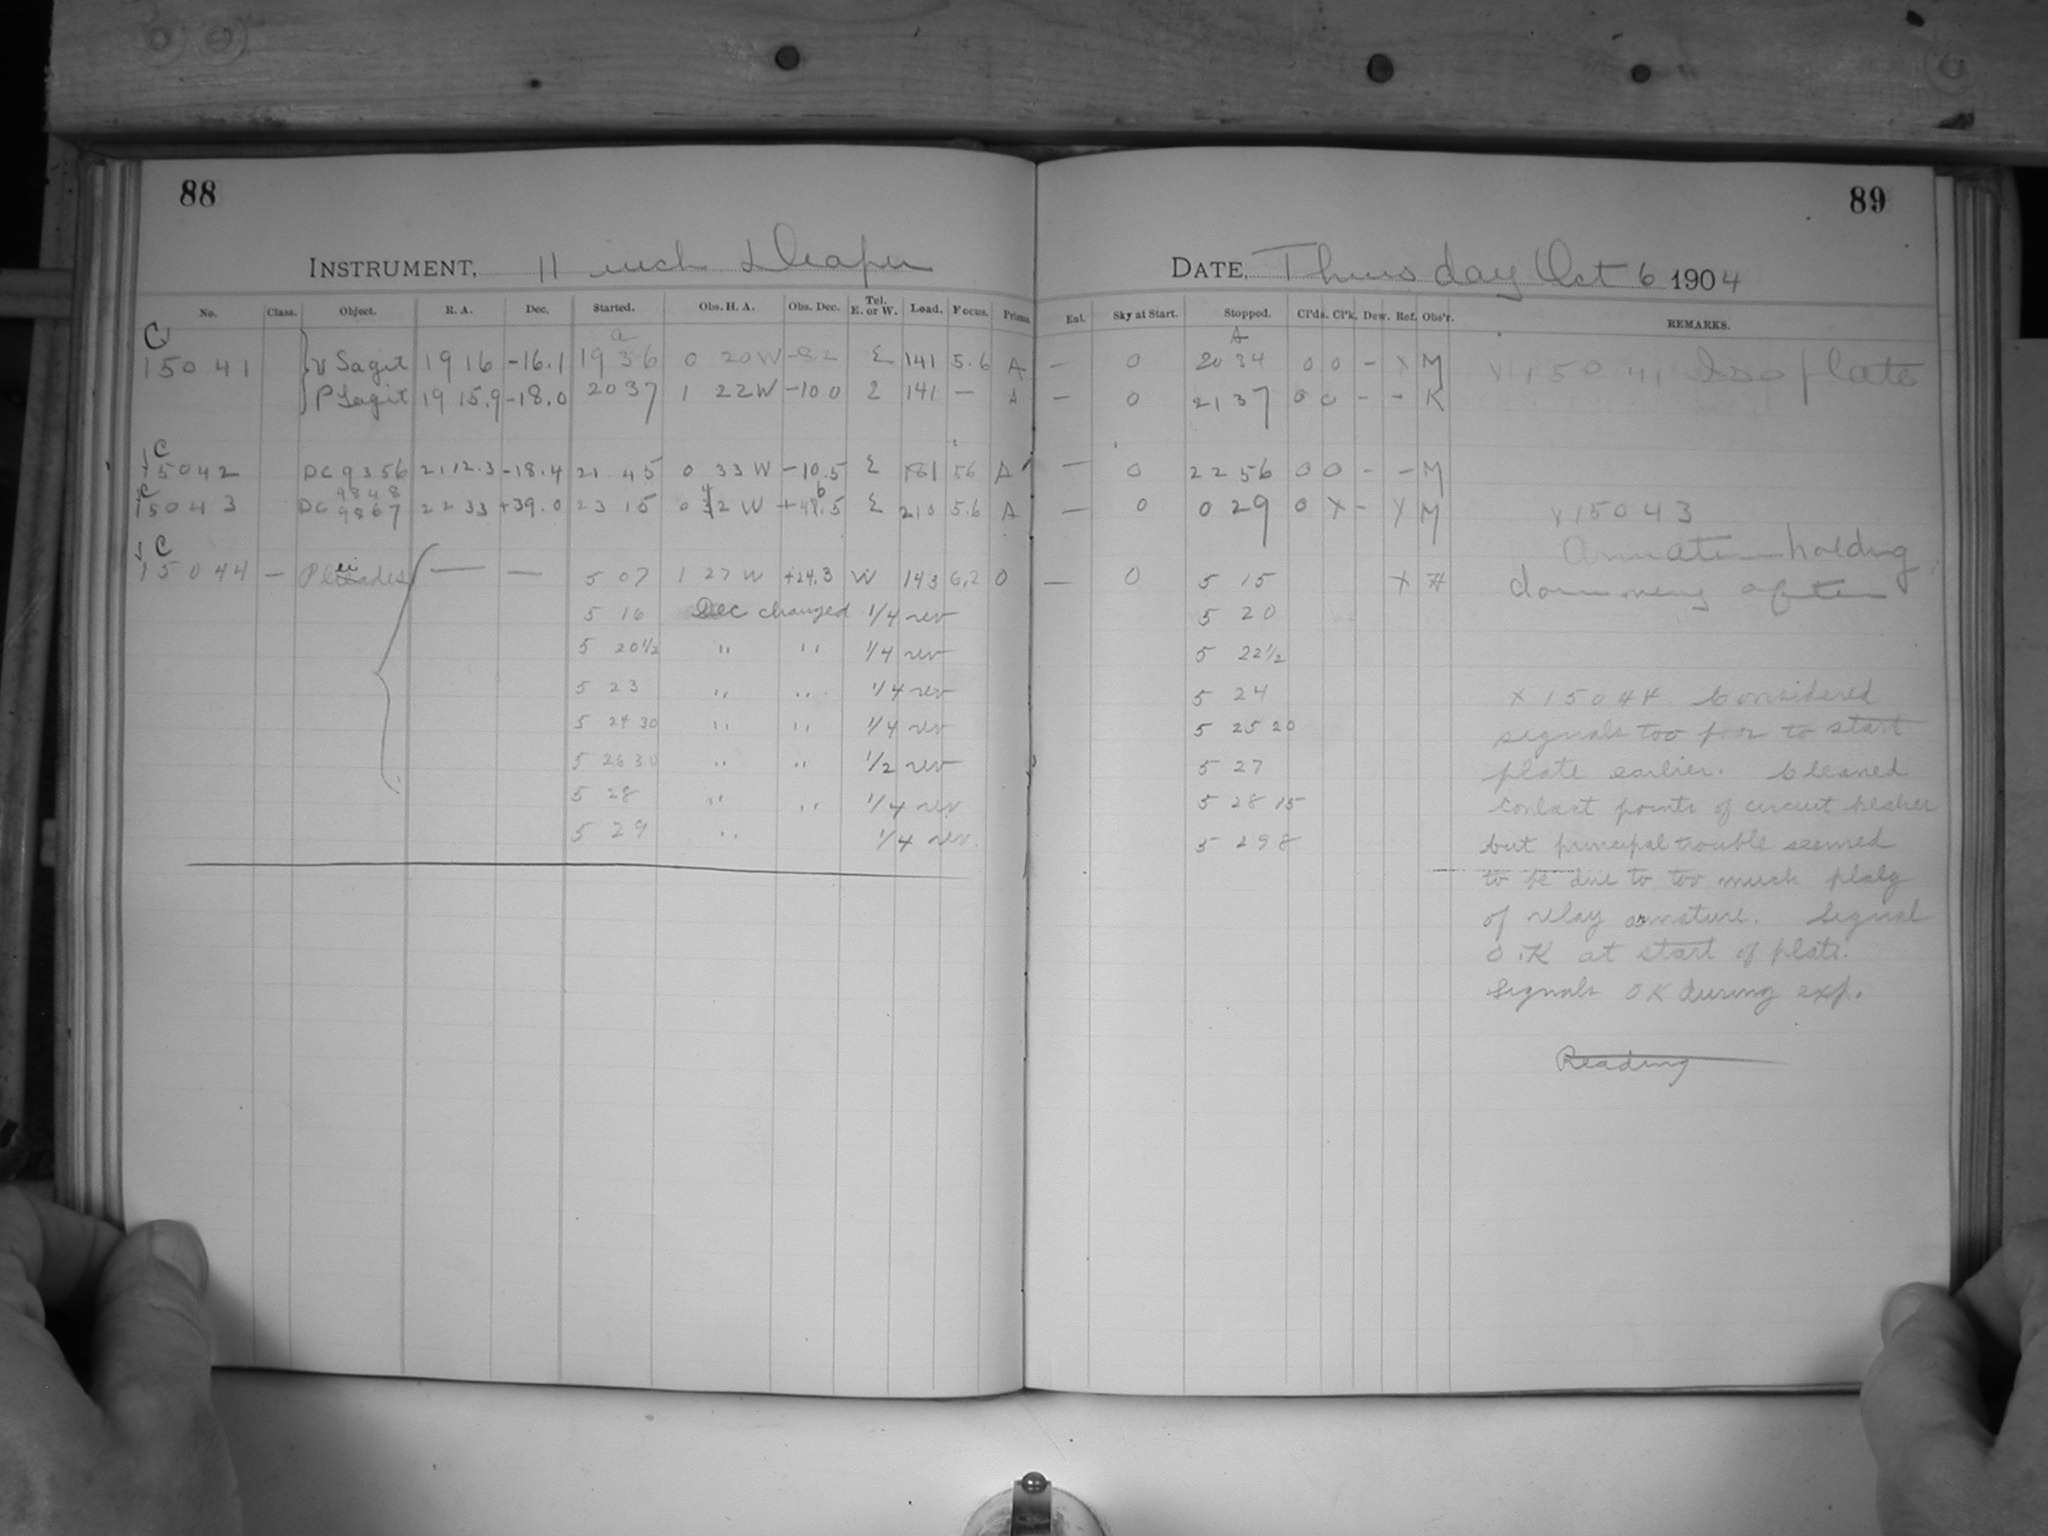 88
INSTRUMENT, 11 inch Draper
No. Class. Object. R. A. Dec. Started. Obs. H. A. Obs. Dec. Tel. E. or W. Load. Focus. Prisms.
C a
15041 υ Sagit 19 16 -16.1 19 36 0 20 W -8.2 E 141 5.6 A
ρ Sagit 19 15.9 -18.0 20 37 1 22 W -10.0 E 141 — A
C
15042 DC 9356 21 12.3 -18.4 21 45 0 33 W -10.5 E 161 56 A
C 9848
15043 DC 9867 22 33 +39.0 23 15 0 42 W E 210 5.6 A
C
15044 — Pleiades — — 5 07 1 27 W +24.3 W 143 6.2 0
5 16 Dec changed 1/4 rev
5 20 1/2 " " 1/4 rev
5 23 " " 1/4 rev
5 24 30 " " 1/4 rev
5 26 30 " " 1/2 rev
5 28 " " 1/4 rev
5 29 " 1/4 rev.
89
DATE, Thursday Oct 6 1904
Eal. Sky at Start. Stopped. Cl'ds. Cl'k. Dew. Ref. Obs'r. REMARKS.
A
— 0 20 34 0 0 - X M X 15041 Iso plate
— 0 21 37 0 0 - - K
— 0 22 56 0 0 - - M
— 0 0 29 0 X - X M X 15043
Armature holding
— 0 5 15 X down very often
5 20
5 22 1/2
5 24 X 15044 Considered
5 25 20 signals too poor to start
5 27 plate earlier. Cleaned
5 28 15 contact points of circuit breaker
5 29 8 but principal trouble seemed
to be due to too much play
of relay armature. Signal
O.K at start of plate.
Signals OK during exp.
Reading